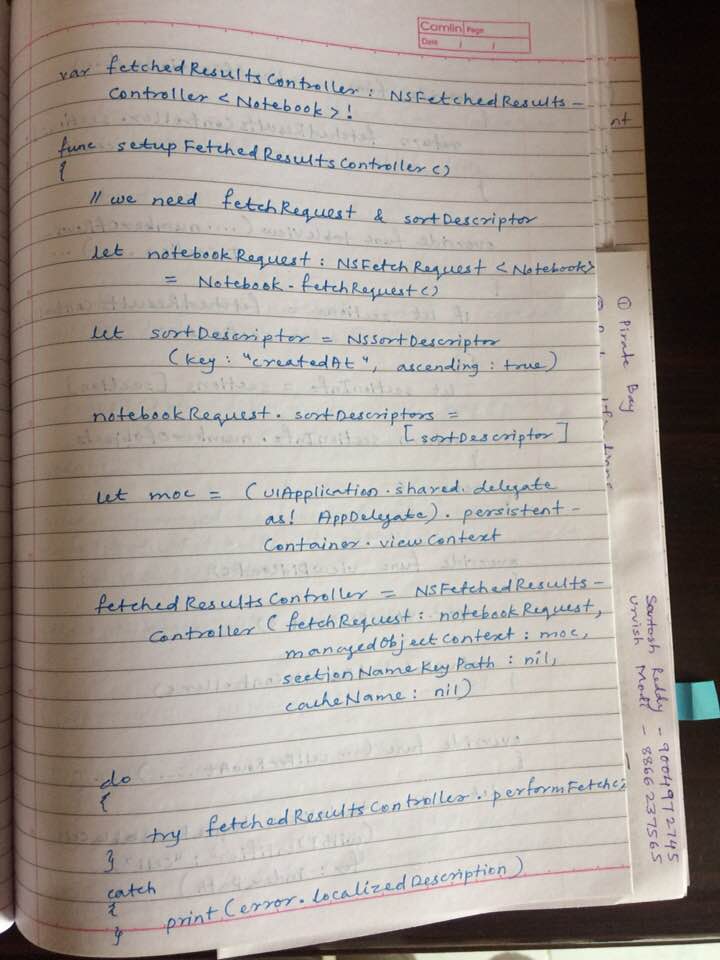 Camlin Page
Date / /
var fetchedResultsController : NSFetchedResults-
Controller <Notebook>!
func setupFetchedResultsController()
{
// we need fetchRequest & sortDescriptor
let notebookRequest : NSFetchRequest <Notebook>
= Notebook.fetchRequest()
let sortDescriptor = NSSortDescriptor
(key : "createdAt", ascending : true)
notebookRequest.sortDescriptors =
[sortDescriptor]
let moc = (UIApplication.shared.delegate
as! AppDelegate).persistent-
Container.viewContext
fetchedResultsController = NSFetchedResults-
Controller (fetchRequest : notebookRequest,
managedObjectContext : moc,
sectionNameKeyPath : nil,
cacheName : nil)
do
{
try fetchedResultsController.performFetch()
}
catch
{
print(error.localizedDescription)
}
nt
① Pirate Bay
Santosh Reddy - 9004972745
Urvish Modi - 8866237565